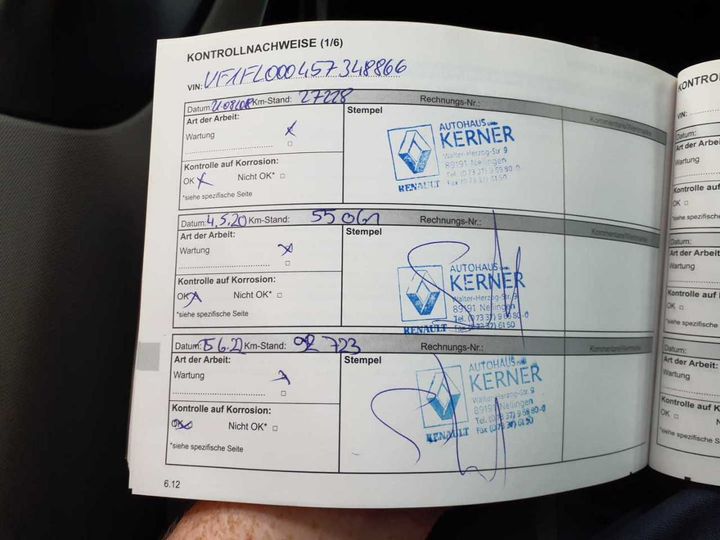 KONTROLLNACHWEISE (1/6)
VIN: VF1FL000457348866
Datum: Km-Stand: 27228 Rechnungs-Nr.: Kommentare/Vermerke
Art der Arbeit: Stempel
Wartung x
Kontrolle auf Korrosion:
OK x Nicht OK*
*siehe spezifische Seite
AUTOHAUS
KERNER
Walter-Herzog-Str. 9
89191 Nellingen
Tel. (0 73 37) 9 69 80-0
Fax (0 73 37) 61 50
RENAULT
Datum: 4.5.20 Km-Stand: 55061 Rechnungs-Nr.: Kommentare/Vermerke
Art der Arbeit: Stempel
Wartung x
Kontrolle auf Korrosion:
OK x Nicht OK*
*siehe spezifische Seite
AUTOHAUS
KERNER
Walter-Herzog-Str. 9
89191 Nellingen
Tel. (0 73 37) 9 69 80-0
Fax (0 73 37) 61 50
RENAULT
Datum: Km-Stand: 92 723 Rechnungs-Nr.: Kommentare/Vermerke
Art der Arbeit: Stempel
Wartung x
Kontrolle auf Korrosion:
OK Nicht OK*
*siehe spezifische Seite
AUTOHAUS
KERNER
Walter-Herzog-Str. 9
89191 Nellingen
Tel. (0 73 37) 9 69 80-0
Fax (0 73 37) 61 50
RENAULT
6.12
VIN:
Datum:
Art der Arbeit
Wartung
Kontrolle auf
OK
*siehe spezifische
Datum:
Art der Arbeit
Wartung
Kontrolle auf
OK
*siehe spezifische
Datum:
Art der Arbeit
Wartung
Kontrolle auf
OK
*siehe spezifische